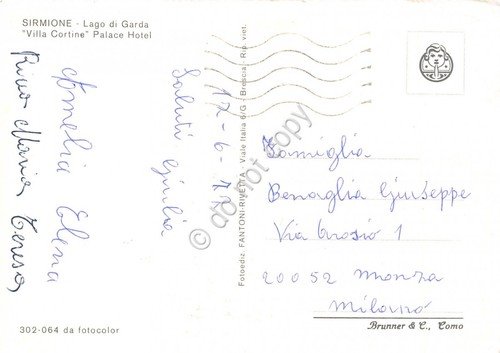 SIRMIONE - Lago di Garda
"Villa Cortine" Palace Hotel
Saluti Giulia
Amelia Elena
Rino Maria Teresa
17-6-77
Fotoediz. FANTONI-RIVETTA - Viale Italia 6/G - Brescia - Rip. viet.
do not copy
Famiglia
Benaglia Giuseppe
Via 1
20052 Monza
Milano
302-064 da fotocolor
Brunner & C., Como